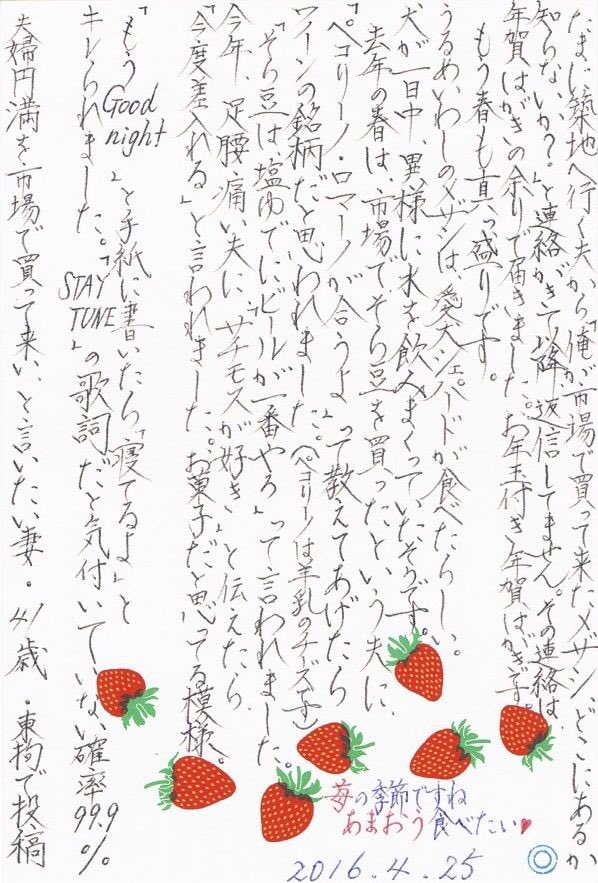 たまに築地へ行く夫から「俺が市場で買って来たメザシ、どこにあるか
知らないか？」と連絡がきて以降、返信してません。その連絡は
年賀はがきの余りで届きました。お年玉付き年賀はがき子。
もう春も真っ盛りです。
うるめいわしのメザシは、愛犬シェパードが食べたらしい。
犬が一日中、異様に水を飲みまくっていたそうです。
去年の春は、市場でそら豆を買ったという夫に、
「ペコリーノ・ロマーノが合うよ」って教えてあげたら
ワインの銘柄だと思われました。（ペコリーノは羊乳のチーズです）
「そら豆は塩ゆでにビールが一番やろ」って言われました。
今年、足腰痛い夫に、「サチモスが好き」と伝えたら、
「今度差入れる」と言われました。お菓子だと思ってる模様。
「もうGood night」と手紙に書いたら「寝てるよ」と
キレられました。「STAY TUNE」の歌詞だと気付いていない確率99.9%
夫婦円満を市場で買って来い、と言いたい妻・41歳・東拘で投稿
苺の季節ですね
あまおう食べたい♥
2016.4.25